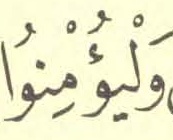 وَلْيُؤْمِنُوا